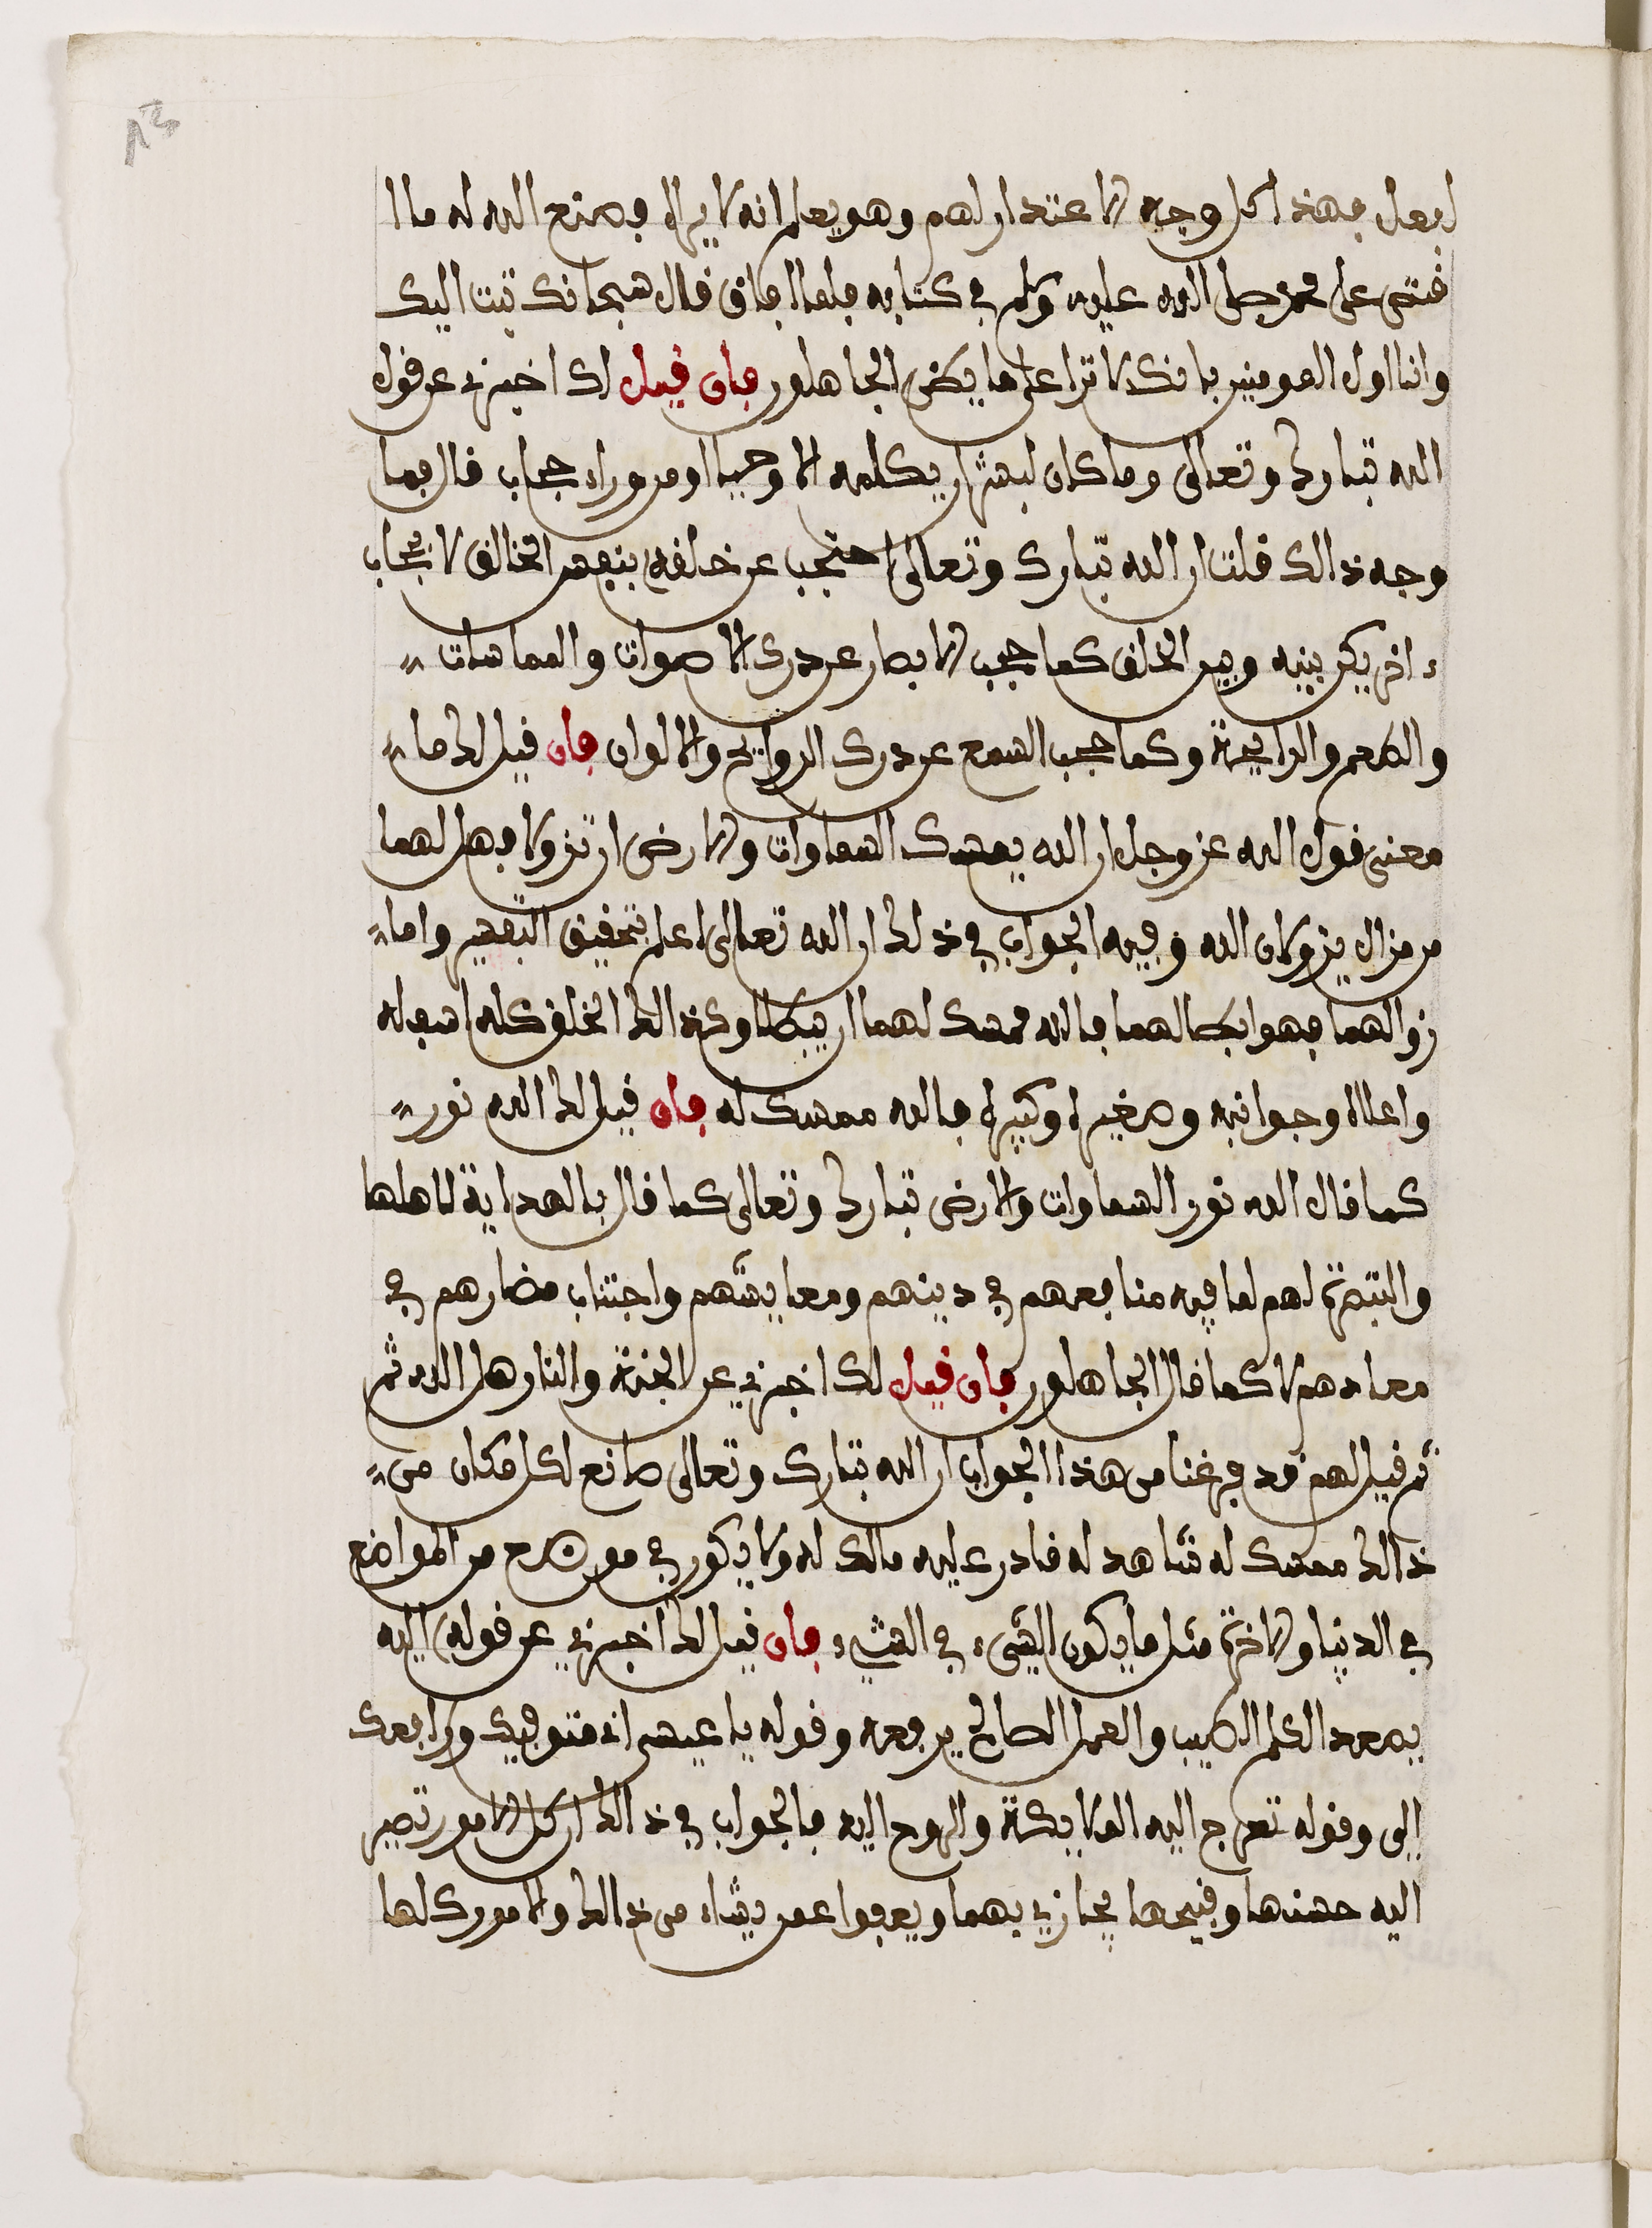 ليفعل فهذا كل وجه الاعتذار لهم وهو يعلم انه لا يراه فصنع الله له ما ا
فتص على محمد صلى الله عليه وسلم في كتابه فلما افاق قال سبحانك تبت اليك
وانا اول المومنين بانك لا ترا على ما يظن الجاهلون فان قيل لك اخبرني عن قول
الله تبارك وتعالى وما كان لبشر ان يكلمه الا وحيا او من وراء حجاب قال فما
وجه ذالك قلت ان الله تبارك وتعالى احتجب عن خلقه بنفس الخالق لا بحجاب
ء اخر يكن بينه وبين الخلق كما حجب الابصار عن درك الاصوات والمماسات
والطعم والرايحة وكما حجب السمع عن درك الروايح والالوان فان قيل لك ما
معنى قول الله عز وجل ان الله يمسك السماوات والارض ان تزولا فهل لهما
من مزال يزولان الله وفيه الجواب في ذلك ان الله تعالى اعلم بتحقيق التفسير واما
زوالهما فهو ابطالهما فالله ممسك لهما ان يبطلا وكذالك الخلق كله اسفله
واعلاه وجوانبه وصغيره وكبيره فالله ممسك له فان قيل لك الله نور
كما قال الله نور السماوات والارض تبارك وتعالى كما قال بالهداية لاهلها
والتبصرة لهم لما فيه منافعهم في دينهم ومعايشهم واجتناب مضارهم في
معادهم لا كما قال الجاهلون فان قيل لك اخبرني عن الجنة والنار هل الله ثم
ثم قيل لهم قد فرغنا من هذا الجواب ان الله تبارك وتعالى صانع لكل مكان من
ذالك ممسك له شاهد له قادر عليه مالك له ولا يكون في موضع من المواضع
في الدنيا والاخرة مثل ما يكون الشيء في الشيء فان قيل لك اخبرني عن قوله اليه
يصعد الكلم الطيب والعمل الصالح يرفعه وقوله يا عيسى اني متوفيك ورافعك
الي وقوله تعرج اليه الملايكة والروح اليه فالجواب في ذالك ان كل الامور تصير
اليه حسنها وقبيحها يجازي بهما ويعفوا عمن يشاء من ذالك والامور كلها